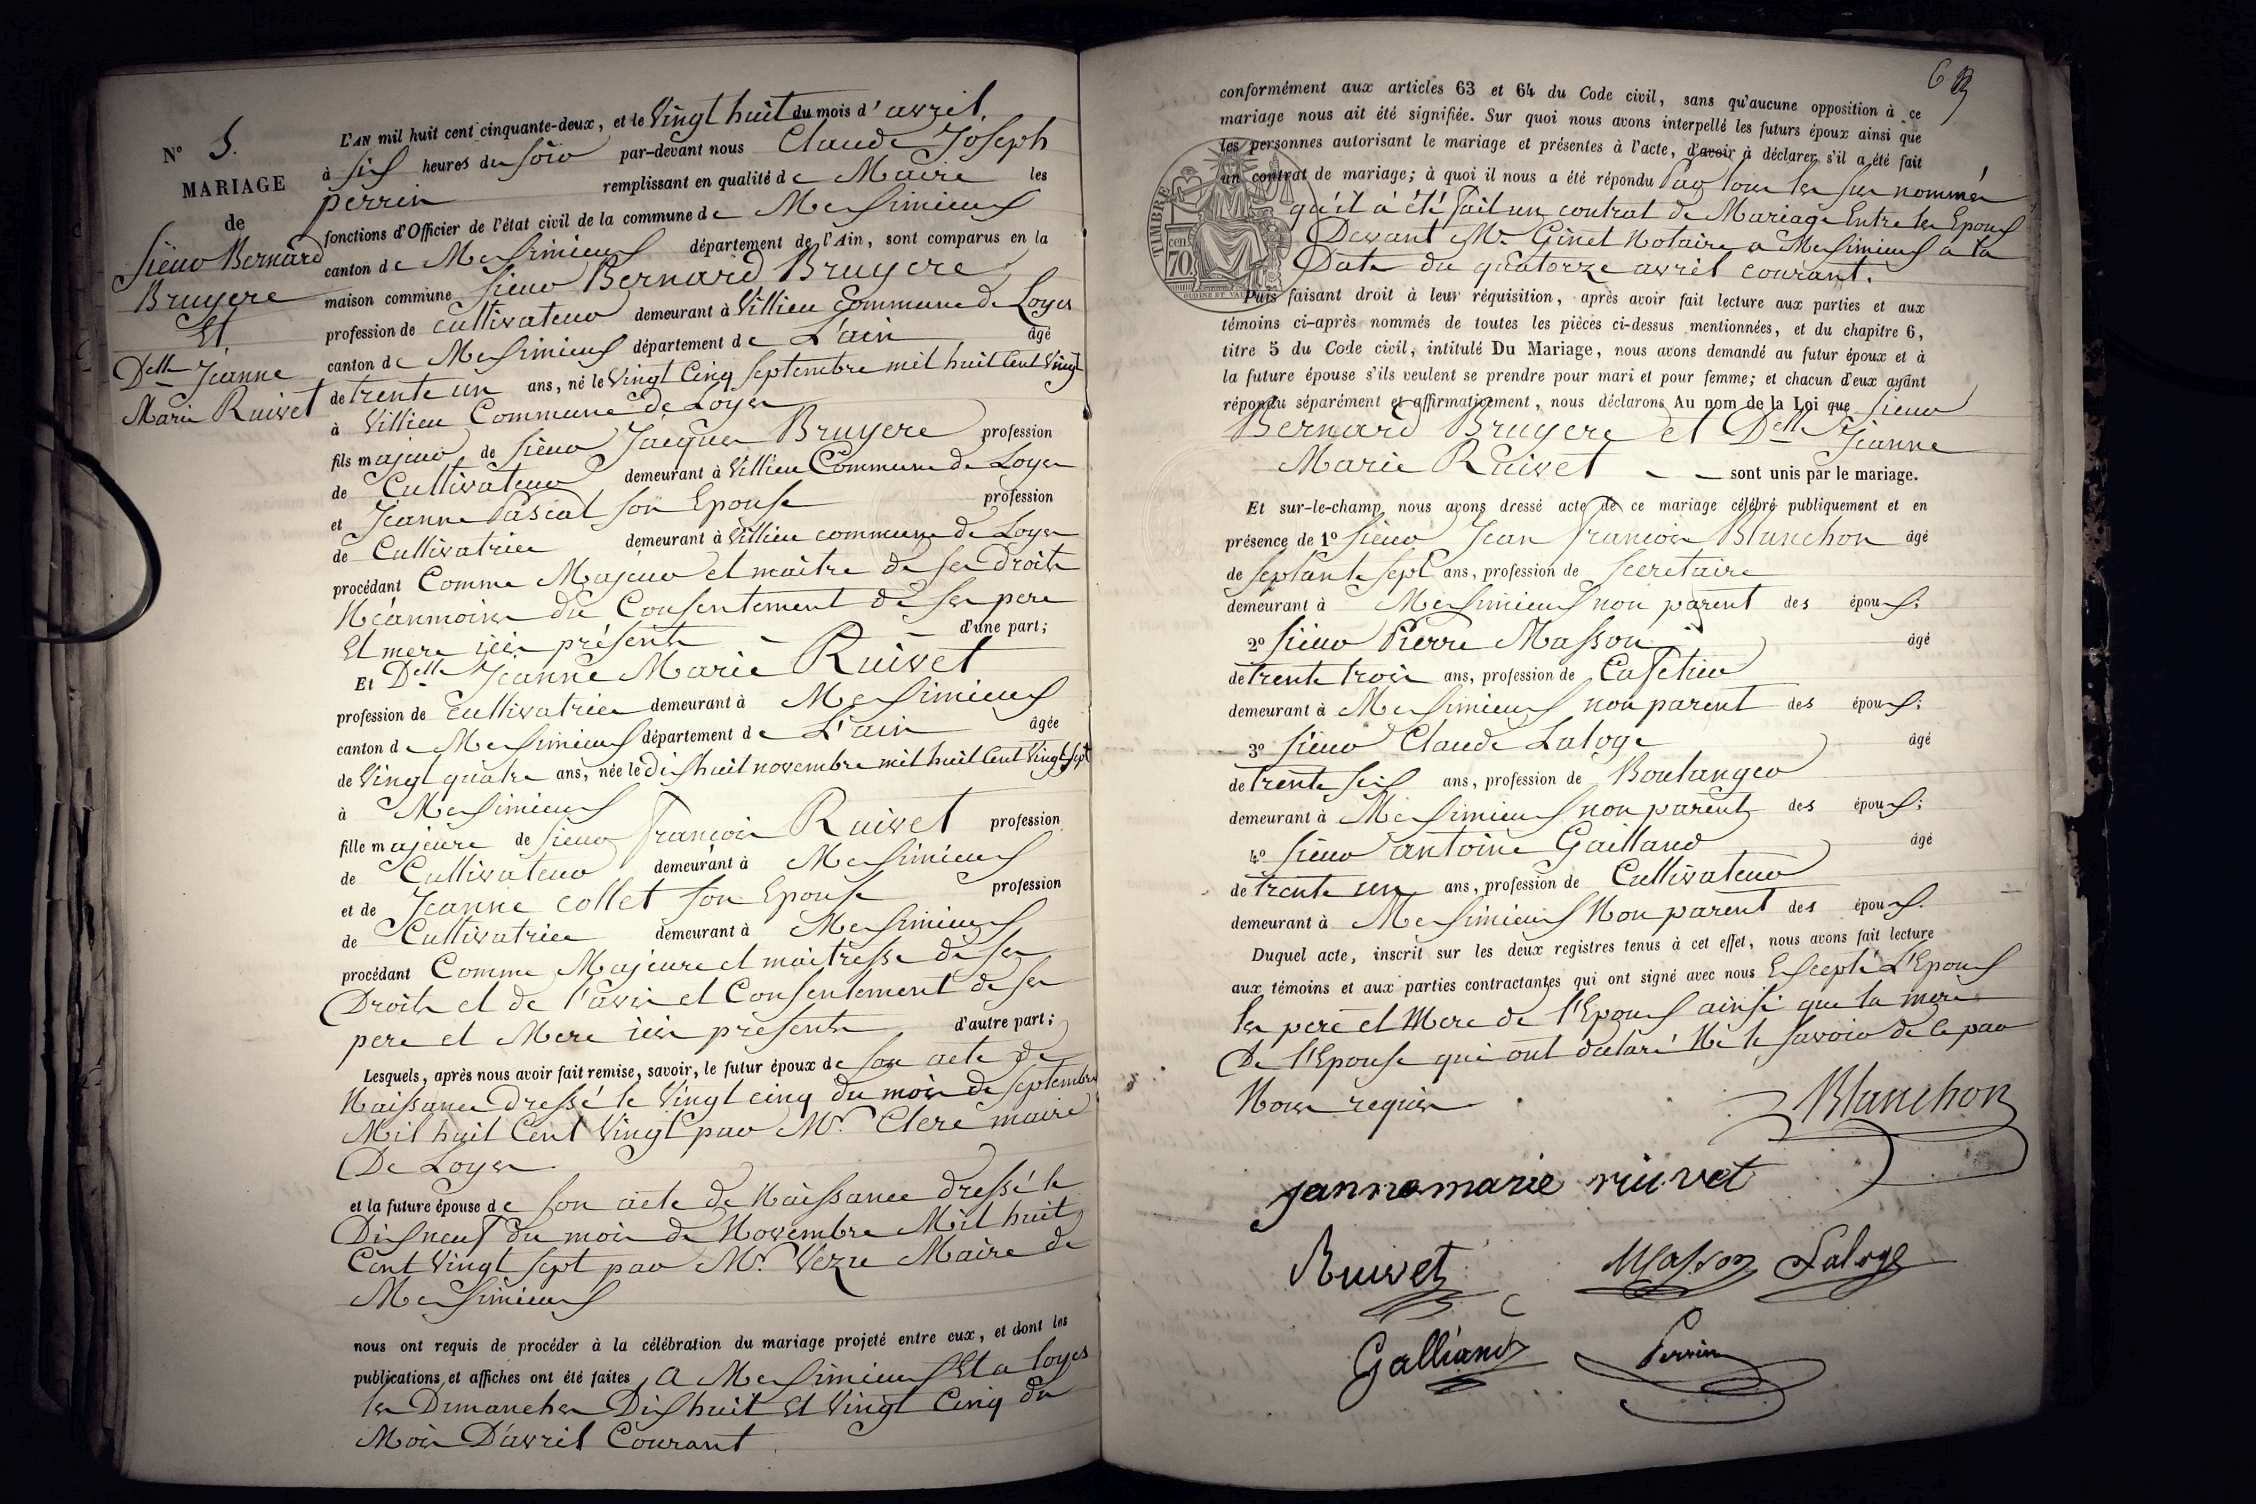 N° 5.
MARIAGE
de
Sieur Bernard
Bruyere
Et
Delle Jeanne
Marie Ruivet
L'AN mil huit cent cinquante-deux, et le Vingt huit du mois d'avril,
à Six heures du soir par-devant nous Claude Joseph
perrin remplissant en qualité de Maire les
fonctions d'Officier de l'état civil de la commune de Meximieux
canton de Meximieux département de l'Ain, sont comparus en la
maison commune Sieur Bernard Bruyere
profession de cultivateur demeurant à Villieu Commune de Loyes
canton de Meximieux département de L'ain âgé
de trente un ans, né le Vingt Cinq septembre mil huit Cent Vingt
à Villieu Commune de Loyes
fils majeur de Sieur Jacques Bruyere profession
de Cultivateur demeurant à Villieu Commune de Loyes
et Jeanne Pascal son Epouse profession
de Cultivatrice demeurant à Villieu commune de Loyes
procédant Comme Majeur et maitre de ses Droits
Néanmoins du Consentement de ses pere
Et mere ici présents d'une part;
Et Delle Jeanne Marie Ruivet
profession de cultivatrice demeurant à Meximieux
canton de Meximieux département de L'ain âgée
de Vingt quatre ans, née le Dix huit novembre mil huit Cent Vingt Sept
à Meximieux
fille majeure de Sieur françois Ruivet profession
de Cultivateur demeurant à Meximieux
et de Jeanne collet son Epouse profession
de Cultivatrice demeurant à Meximieux
procédant Comme Majeure et maitresse de ses
Droits et de l'avis et Consentement de ses
pere et Mere ici présents d'autre part;
Lesquels, après nous avoir fait remise, savoir, le futur époux de son acte de
Naissance Dressé le Vingt cinq du mois de septembre
Mil huit Cent Vingt par Mr. Clere maire
De Loyes
et la future épouse de son acte de Naissance dressé le
Dix neuf du mois de Novembre Mil huit
Cent Vingt sept par Mr. Vezu Maire de
Meximieux
nous ont requis de procéder à la célébration du mariage projeté entre eux, et dont les
publications et affiches ont été faites A Meximieux Et a loyes
les Dimanches Dix huit et Vingt Cinq du
Mois D'avril Courant
6
conformément aux articles 63 et 64 du Code civil, sans qu'aucune opposition à ce
mariage nous ait été signifiée. Sur quoi nous avons interpellé les futurs époux ainsi que
les personnes autorisant le mariage et présentes à l'acte, d'avoir à déclarer s'il a été fait
un contrat de mariage; à quoi il nous a été répondu Par tous les sus nommés
qu'il a été fait un contrat de Mariage Entre les Epoux
Devant Mr. Ginet Notaire a Meximieux a la
Date du quatorze avril courant.
TIMBRE
cen
70
OUDINE ET VAU
Puis faisant droit à leur réquisition, après avoir fait lecture aux parties et aux
témoins ci-après nommés de toutes les pièces ci-dessus mentionnées, et du chapitre 6,
titre 5 du Code civil, intitulé Du Mariage, nous avons demandé au futur époux et à
la future épouse s'ils veulent se prendre pour mari et pour femme; et chacun d'eux ayant
répondu séparément et affirmativement, nous déclarons Au nom de la Loi que Sieur
Bernard Bruyere et Delle Jeanne
Marie Ruivet sont unis par le mariage.
Et sur-le-champ nous avons dressé acte de ce mariage célébré publiquement et en
présence de 1° Sieur Jean françois Blanchon âgé
de septante sept ans, profession de Secretaire
demeurant à Meximieux non parent des époux;
2° Sieur Pierre Masson âgé
de trente trois ans, profession de Cafetier
demeurant à Meximieux non parent des époux;
3° Sieur Claude Laloge âgé
de trente six ans, profession de Boulanger
demeurant à Meximieux non parent des époux;
4° Sieur antoine Gailland âgé
de trente un ans, profession de Cultivateur
demeurant à Meximieux Non parent des époux.
Duquel acte, inscrit sur les deux registres tenus à cet effet, nous avons fait lecture
aux témoins et aux parties contractantes qui ont signé avec nous Excepté L'Epoux
les pere et Mere de l'Epoux ainsi que la mere
De l'Epouse qui ont déclaré Ne le savoir de ce par
Nous requis
Blanchon
janne marie ruivet
Ruivet Masson Laloge
Galliand Perrin